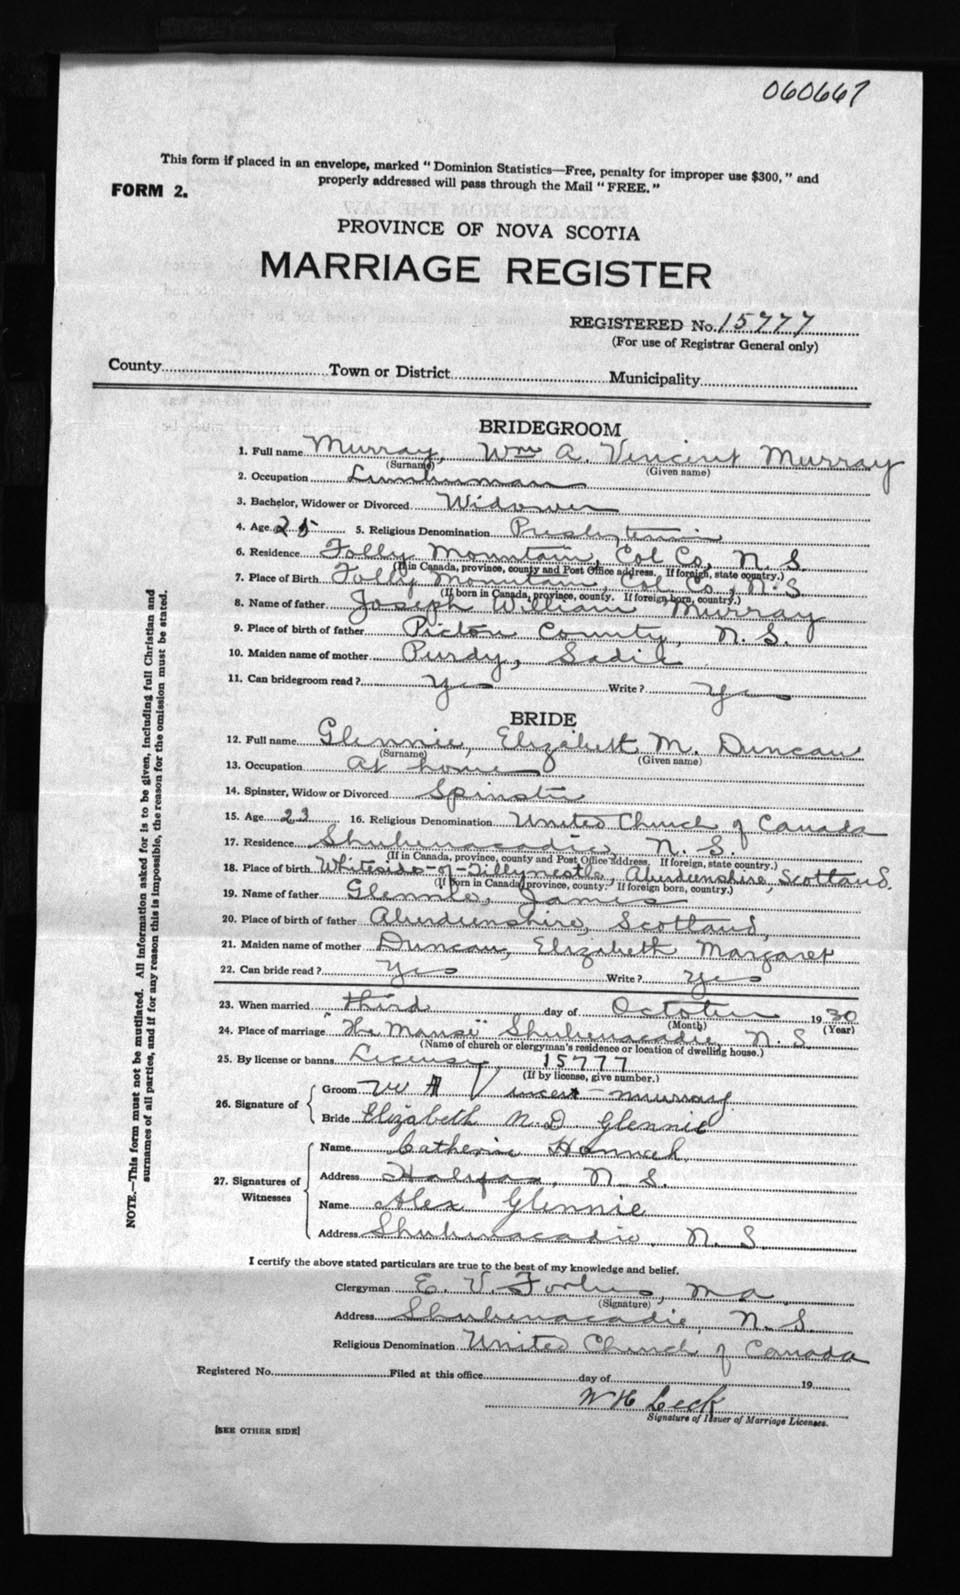 060667
This form if placed in an envelope, marked "Dominion Statistics—Free, penalty for improper use $300," and
FORM 2. properly addressed will pass through the Mail "FREE."
PROVINCE OF NOVA SCOTIA
MARRIAGE REGISTER
REGISTERED No. 15777
(For use of Registrar General only)
County Town or District Municipality
BRIDEGROOM
1. Full name Murray, Wm A. Vincent Murray
(Surname) (Given name)
2. Occupation Lumberman
3. Bachelor, Widower or Divorced Widower
4. Age 25 5. Religious Denomination Presbyterian
6. Residence Folly Mountain, Col Co, N. S.
(If in Canada, province, county and Post Office address. If foreign, state country.)
7. Place of Birth Folly Mountain, Col Co, N. S.
(If born in Canada, province, county. If foreign born, country.)
8. Name of father Joseph William Murray
9. Place of birth of father Pictou County, N. S.
10. Maiden name of mother Purdy, Sadie
11. Can bridegroom read? Yes Write? Yes
BRIDE
12. Full name Glennie, Elizabeth M. Duncan
(Surname) (Given name)
13. Occupation At home
14. Spinster, Widow or Divorced Spinster
15. Age 23 16. Religious Denomination United Church of Canada
17. Residence Shubenacadie, N. S.
(If in Canada, province, county and Post Office address. If foreign, state country.)
18. Place of birth Whiteside-of-Tillynestle, Aberdeenshire, Scotland.
(If born in Canada, province, county. If foreign born, country.)
19. Name of father Glennie, James
20. Place of birth of father Aberdeenshire, Scotland,
21. Maiden name of mother Duncan, Elizabeth Margaret
22. Can bride read? Yes Write? Yes
23. When married third day of October 1930
(Month) (Year)
24. Place of marriage "The Manse" Shubenacadie, N. S.
(Name of church or clergyman's residence or location of dwelling house.)
25. By license or banns License 15777
(If by license, give number.)
26. Signature of Groom W A Vincent Murray
Bride Elizabeth M. D. Glennie
27. Signatures of Witnesses Name Catherine Hannah
Address Halifax, N. S.
Name Alex Glennie
Address Shubenacadie, N. S.
I certify the above stated particulars are true to the best of my knowledge and belief.
Clergyman E. V. Forbes, M A
(Signature)
Address Shubenacadie, N. S.
Religious Denomination United Church of Canada
Registered No. Filed at this office day of 19
W H Leck
Signature of Issuer of Marriage Licenses.
[SEE OTHER SIDE]
NOTE.—This form must not be mutilated. All information asked for is to be given, including full Christian and
surnames of all parties, and if for any reason this is impossible, the reason for the omission must be stated.